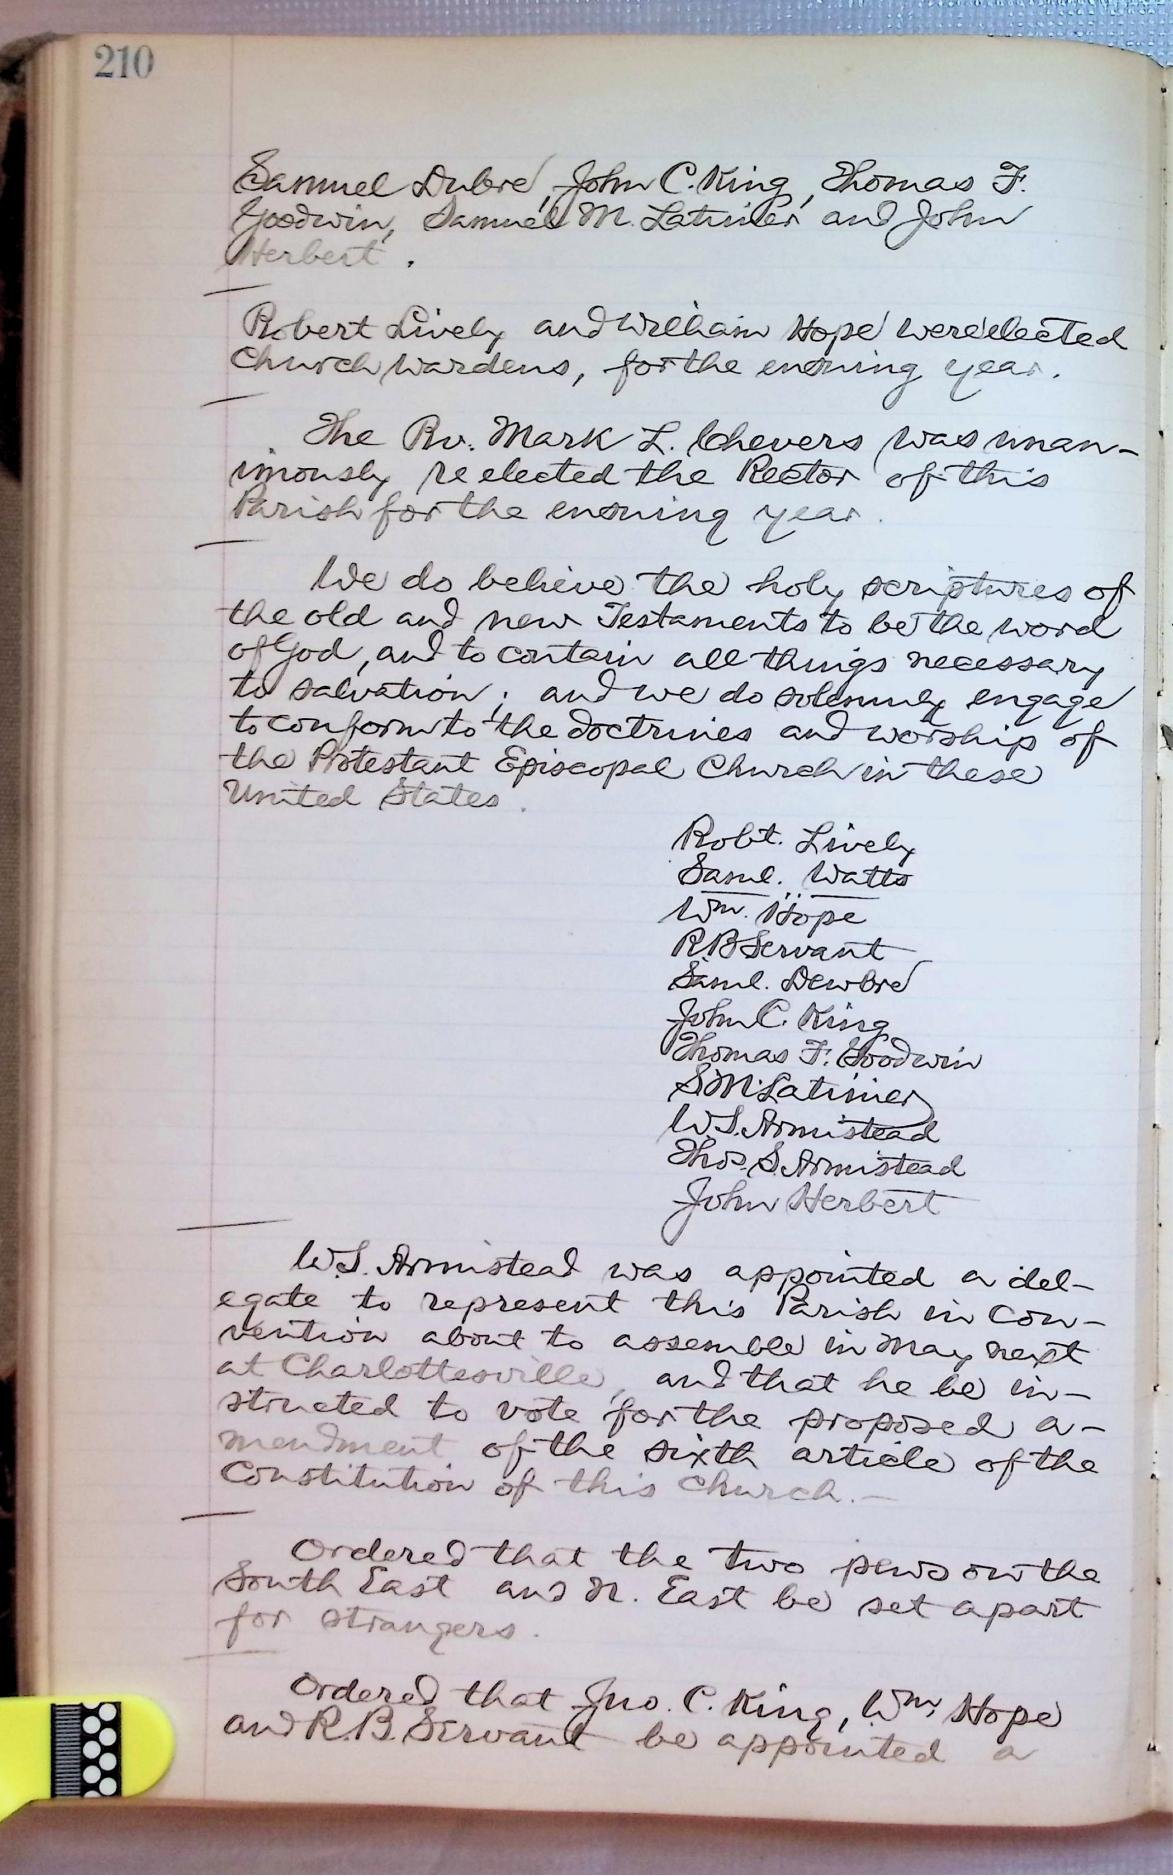 210
Samuel Dubre, John C. King, Thomas F.
Goodwin, Samuel M. Latimer and John
Herbert.
Robert Lively and William Hope were elected
Church Wardens, for the ensuing year.
The Rv. Mark L. Chevers was unan-
imously re elected the Rector of this
Parish for the ensuing year.
We do believe the holy scriptures of
the old and new Testaments to be the word
of God, and to contain all things necessary
to salvation; and we do solemnly engage
to conform to the doctrines and worship of
the Protestant Episcopal Church in these
United States.
Robt. Lively
Saml. Watts
Wm. Hope
R B Servant
Saml. Dewbre
John C. King
Thomas F. Goodwin
S M Latimer
W.S. Armistead
Thos. S. Armistead
John Herbert
W.S. Armistead was appointed a del-
egate to represent this Parish in Con-
vention about to assemble in May next
at Charlottesville, and that he be in-
structed to vote for the proposed a-
mendment of the sixth article of the
Constitution of this Church.—
Ordered that the two pews on the
South East and N. East be set apart
for strangers.
Ordered that Jno. C. King, Wm. Hope
and R. B. Servant be appointed a